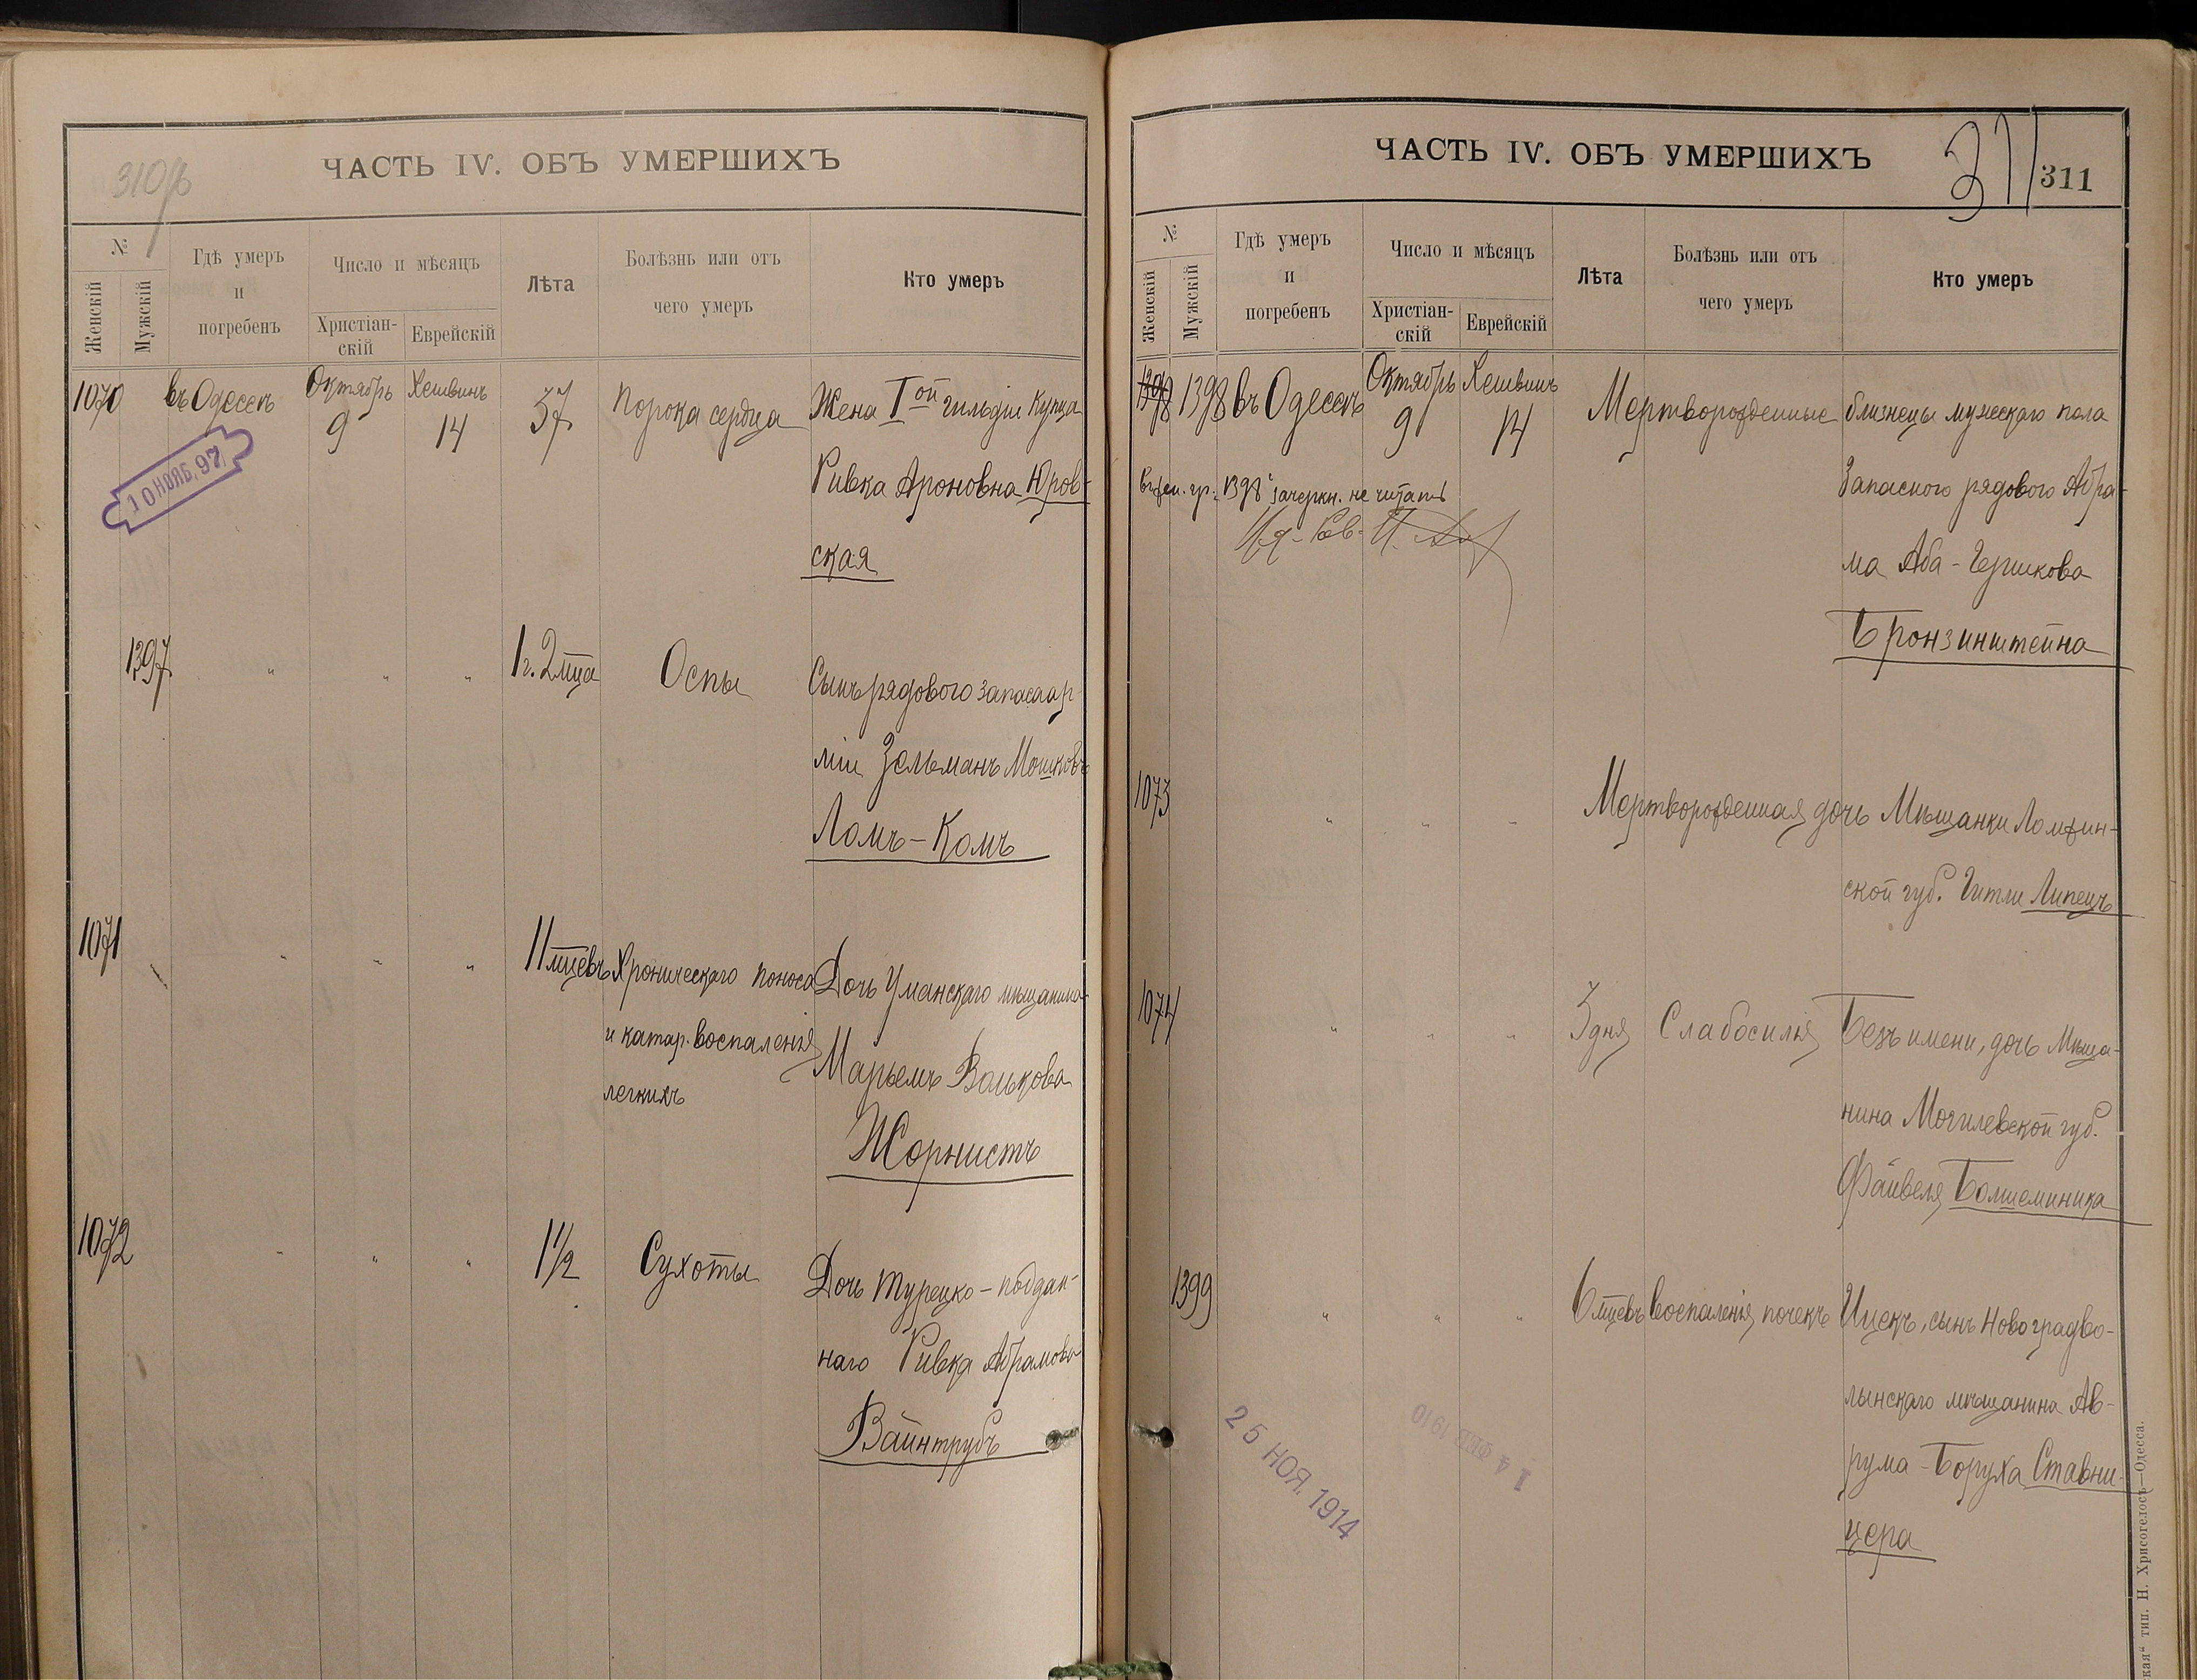 310об
ЧАСТЬ IV. ОБЪ УМЕРШИХЪ
№
Женскій
Мужскій
Гдѣ умеръ
и
погребенъ
Число и мѣсяцъ
Христіан-
скій
Еврейскій
Лѣта
Болѣзнь или отъ
чего умеръ
Кто умеръ
1070 въ Одессѣ Октябрь 9 Хешвинъ 14 37 Порока сердца Жена Iой гильдіи Купца
Ривка Ароновна Юров-
ская
10 НОЯБ. 97
1397 " " " 1 г. 2 мца Оспы Сынъ рядового запаса ар-
міи Зельманъ Мошковъ
Ломъ-Комъ
1071 " " " 11 мцевъ Хроническаго поноса Дочь Уманскаго мѣщанина
и катар. воспаленія Марьемъ Волькова
легкихъ
Жорнистъ
1072 " " " 1 1/2 Сухоты Дочь турецко-поддан-
наго Ривка Абрамова
Вайнтрубъ
ЧАСТЬ IV. ОБЪ УМЕРШИХЪ
311
311
№
Женскій
Мужскій
Гдѣ умеръ
и
погребенъ
Число и мѣсяцъ
Христіан-
скій
Еврейскій
Лѣта
Болѣзнь или отъ
чего умеръ
Кто умеръ
1398 1398 въ Одессѣ Октябрь 9 Хешвинъ 14 Мертворожденные близнецы мужескаго пола
Запасного рядового Абра-
ма Аба-Гершкова
Бронзинштейна
въ жен. гр. "1398" зачеркн. не читать
И.д. Рав.
1073 " " " Мертворожденная дочь Мѣщанки Ломжин-
ской губ. Гитли Липецъ
1074 " " " 3 дня Слабосилія Безъ имени, дочь Мѣща-
нина Могилевской губ.
Файвеля Болшеминика
1399 " " " 6 мцевъ воспаленія почекъ Ицекъ, сынъ Новоградво-
лынскаго мѣщанина Ав-
рума-Боруха Ставни-
цера
25 НОЯ. 1914
14 ФЕВ 1910
тип. Н. Хрисогелосъ—Одесса.